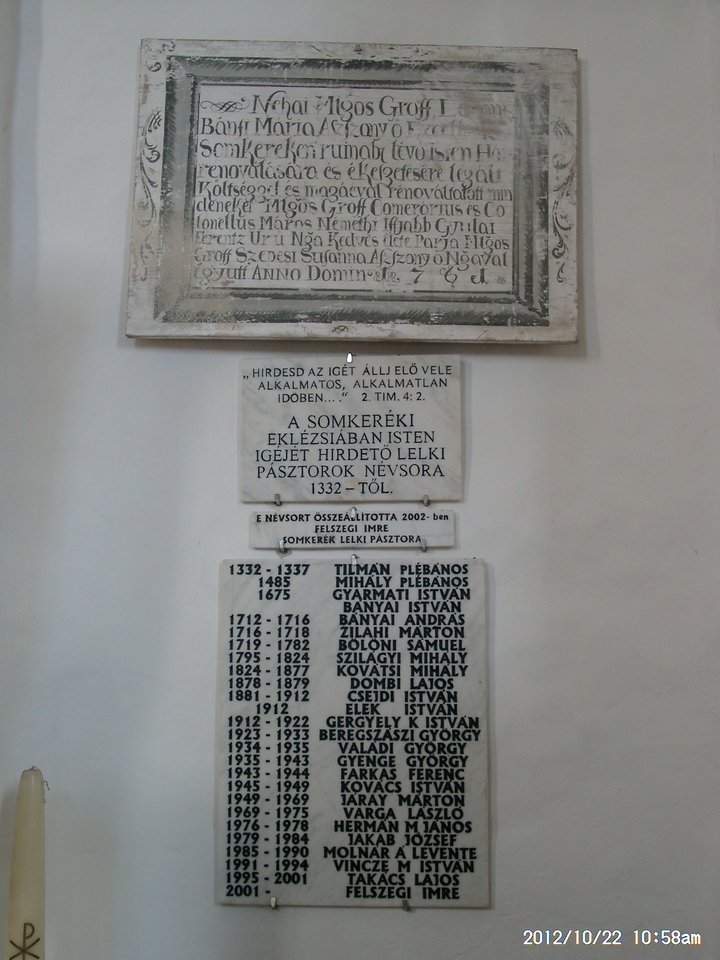 Néhai Mlgos Groff L
Bánfi Mária Aszszony ő
Somkereken ruinába lévő Isten
renoválására és ékelgetésére legált
Költséggel és magáéval renováltatott min
deneket Mlgos Groff Comerarius és Co
lonellus Máros Némethi Iffjabb Gyulai
Ferentz Ur ú Nga Kedves élete Párja Mlgos
Groff Szebesi Susanna Aszszony ő Ngával
együtt ANNO Domin 1761.
„HIRDESD AZ IGÉT ÁLLJ ELŐ VELE
ALKALMATOS, ALKALMATLAN
IDŐBEN... .“ 2. TIM. 4: 2.
A SOMKERÉKI
EKLÉZSIÁBAN ISTEN
IGÉJÉT HIRDETŐ LELKI
PÁSZTOROK NÉVSORA
1332 – TŐL.
E NÉVSORT ÖSSZEÁLLÍTOTTA 2002- ben
FELSZEGI IMRE
SOMKERÉK LELKI PÁSZTORA
1332 - 1337 TILMAN PLÉBÁNOS
1485 MIHÁLY PLÉBÁNOS
1675 GYARMATI ISTVÁN
BÁNYAI ISTVÁN
1712 - 1716 BÁNYAI ANDRÁS
1716 - 1718 ZILAHI MÁRTON
1719 - 1782 BÖLÖNI SÁMUEL
1795 - 1824 SZILÁGYI MIHÁLY
1824 - 1877 KOVÁTSI MIHÁLY
1878 - 1879 DOMBI LAJOS
1881 - 1912 CSEJDI ISTVÁN
1912 ELEK ISTVÁN
1912 - 1922 GERGYELY K ISTVÁN
1923 - 1933 BEREGSZÁSZI GYÖRGY
1934 - 1935 VALÁDI GYÖRGY
1935 - 1943 GYENGE GYÖRGY
1943 - 1944 FARKAS FERENC
1945 - 1949 KOVÁCS ISTVÁN
1949 - 1969 JÁRAY MÁRTON
1969 - 1975 VARGA LÁSZLÓ
1976 - 1978 HERMÁN M JÁNOS
1979 - 1984 JAKAB JÓZSEF
1985 - 1990 MOLNÁR Á LEVENTE
1991 - 1994 VINCZE M ISTVÁN
1995 - 2001 TAKÁCS LAJOS
2001 - FELSZEGI IMRE
2012/10/22 10:58am